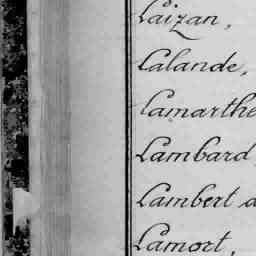 Laizan,
Lalande,
Lamarthe
Lambard
Lambert
Lamort,